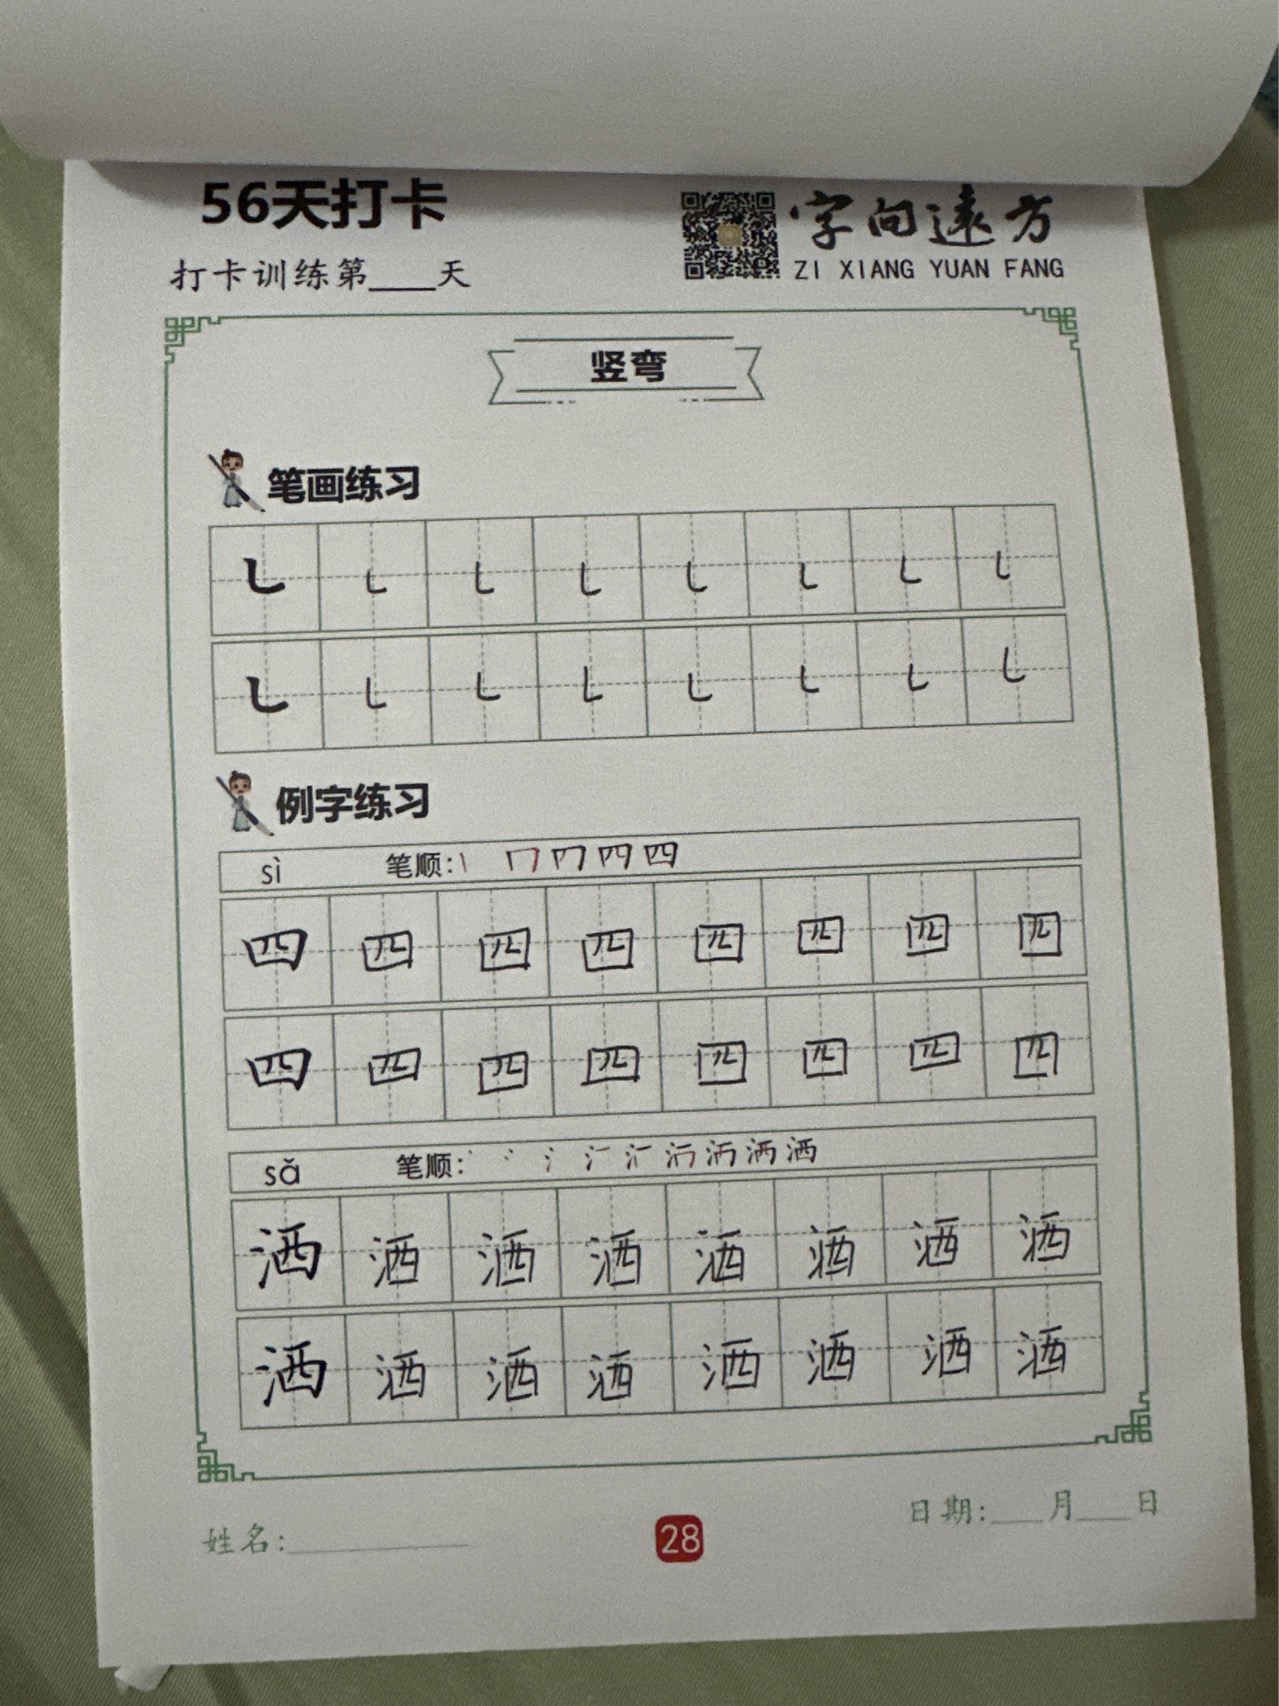 56天打卡
字向遠方
打卡训练第____天
ZI XIANG YUAN FANG
竖弯
笔画练习
㇄ ㇄ ㇄ ㇄ ㇄ ㇄ ㇄ ㇄
㇄ ㇄ ㇄ ㇄ ㇄ ㇄ ㇄ ㇄
例字练习
sì 笔顺: 丨 冂 四
四 四 四 四 四 四 四 四
四 四 四 四 四 四 四 四
sǎ 笔顺: 丶 冫 氵 洒
洒 洒 洒 洒 洒 洒 洒 洒
洒 洒 洒 洒 洒 洒 洒 洒
姓名:________
28
日期:___月___日